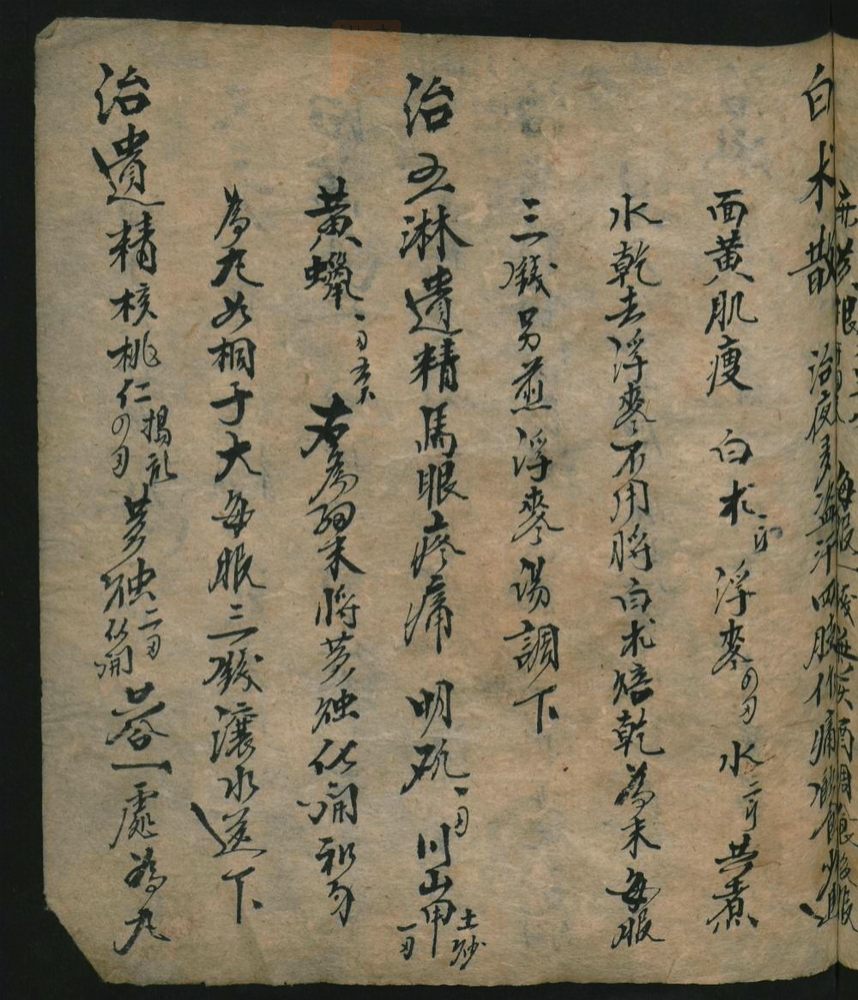 白术散 治夜多盗汗四肢作痛飲食少進
面黄肌瘦 白术一兩 浮麥四兩 水二可共煮
水乾去浮麥不用將白术焙乾為末每服
三錢另煎浮麥湯調下
治五淋遺精馬眼疼痛 明矾一兩 川山甲土炒一兩
黄蠟一兩五 右為細末將黄蠟化開和勻
為丸如桐子大每服三錢滚水送下
治遺精核桃仁四兩捣 黄蠟二兩化開 共合一處為丸